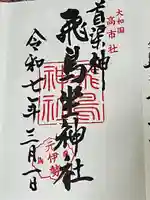 大和国
高市社
首渠神
飛鳥坐神社
飛鳥
神社
元伊勢
令和七年三月一日